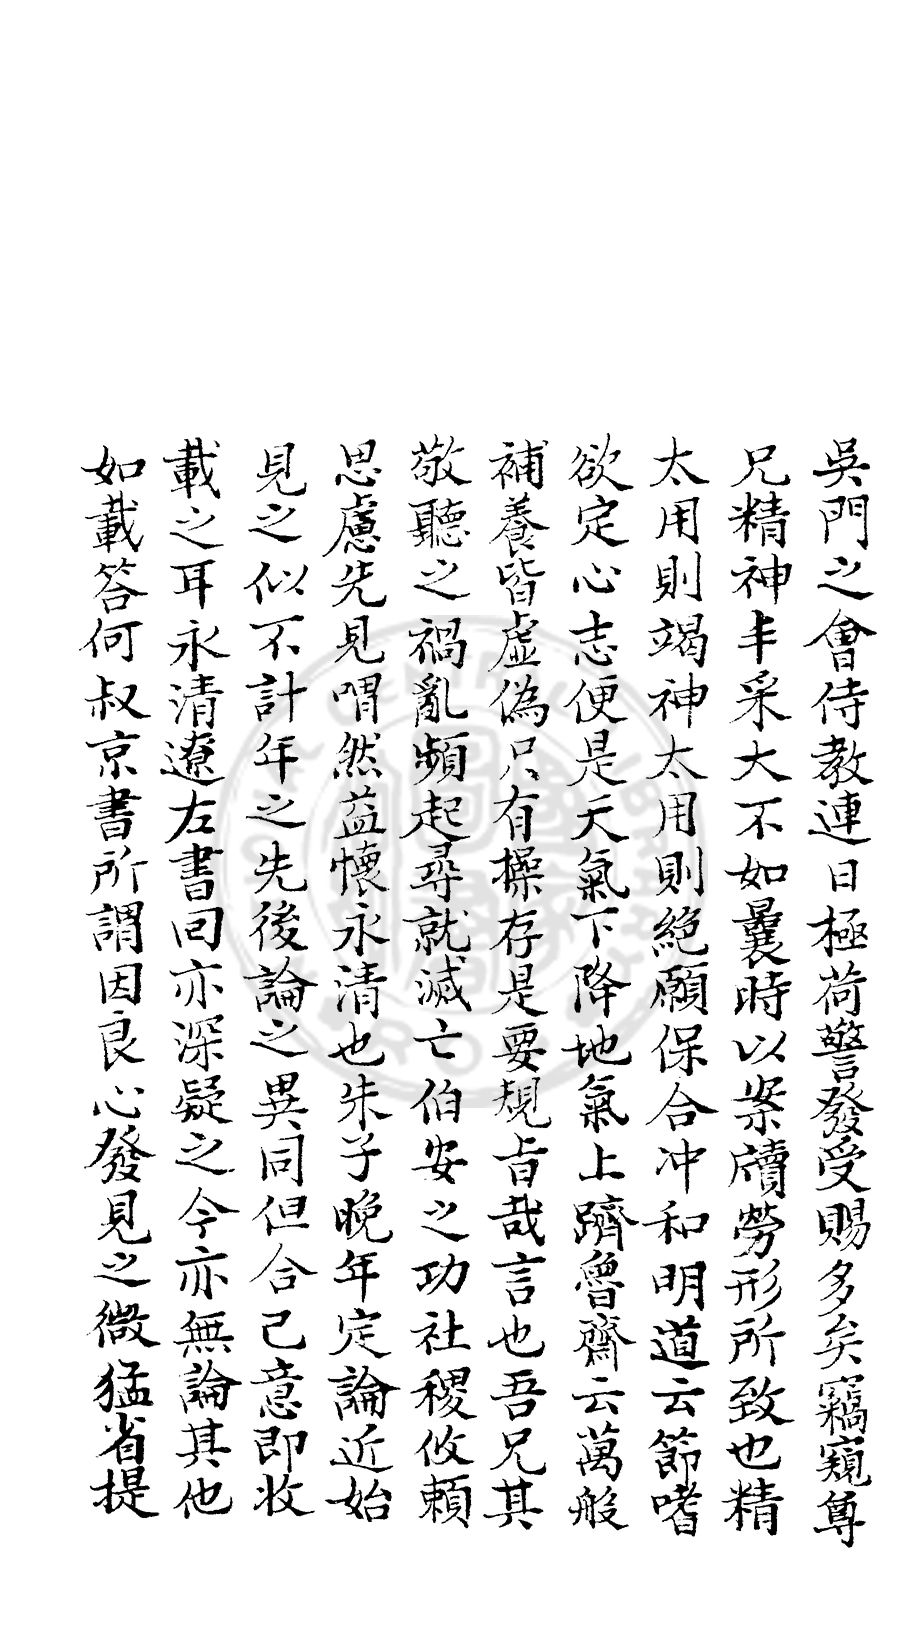 吳門之會侍教連日極荷警發受賜多矣竊窺尊
兄精神丰采大不如曩時以案牘勞形所致也精
太用則竭神太用則絕願保合冲和明道云節嗜
欲定心志便是天氣下降地氣上躋魯齋云萬般
補養皆虛偽只有操存是要規旨哉言也吾兄其
敬聽之禍亂頻起尋就滅亡伯安之功社稷攸賴
思慮先見喟然益懷永清也朱子晚年定論近始
見之似不計年之先後論之異同但合己意即收
載之耳永清遼左書回亦深疑之今亦無論其他
如載答何叔京書所謂因良心發見之微猛省提